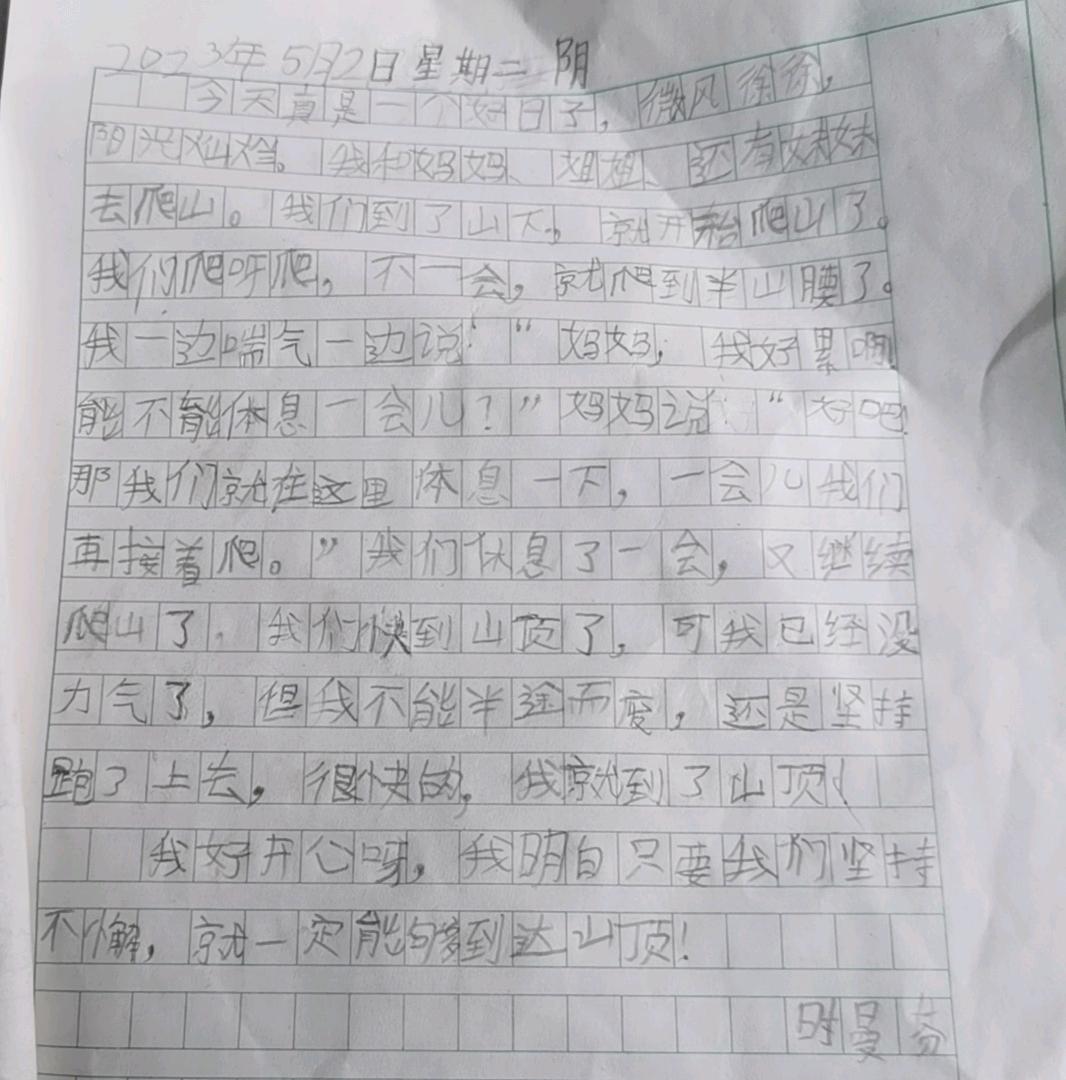 2023年5月2日星期二 阴
今天真是一个好日子，微风徐徐，
阳光灿烂。我和妈妈、姐姐、还有妹妹
去爬山。我们到了山下。就开始爬山了。
我们爬呀爬，不一会，就爬到半山腰了。
我一边喘气一边说：“妈妈，我好累啊！
能不能体息一会儿？”妈妈说：“好吧！
那我们就在这里体息一下，一会儿我们
再接着爬。”我们休息了一会，又继续
爬山了。我们快到山顶了，可我已经没
力气了，但我不能半途而废，还是坚持
跑了上去，很快的，我就到了山顶！
我好开心呀，我明白只要我们坚持
不懈，就一定能够到达山顶！
时曼芬